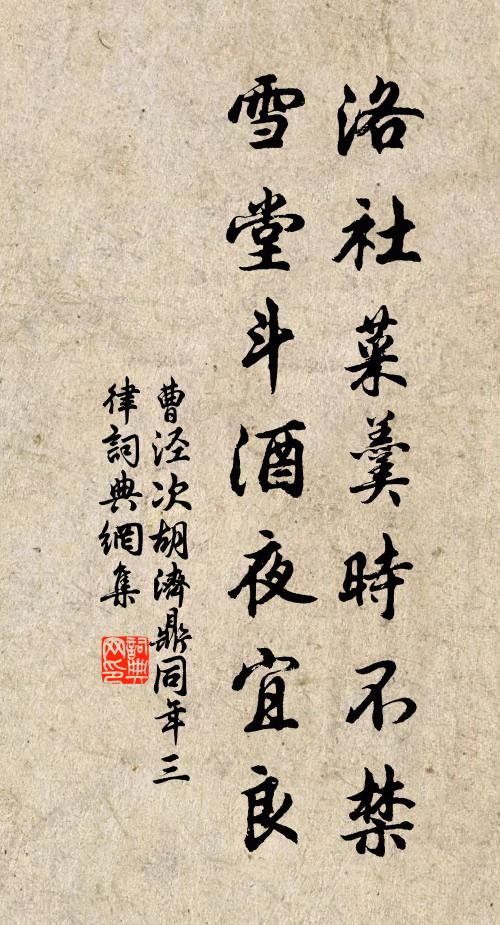 洛社菜羹時不禁
雪堂斗酒夜宜良
曹泾次胡濟鼎同年三
律詞典網集
詞典网印